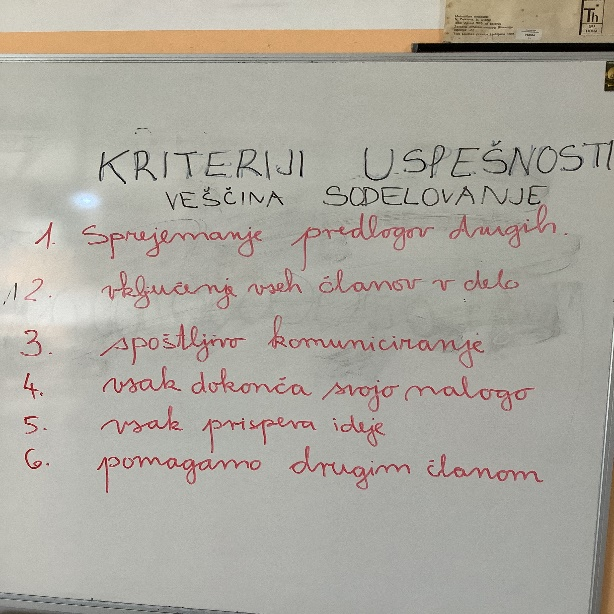 Th
KRITERIJI USPEŠNOSTI
VEŠČINA SODELOVANJE
1. Sprejemanje predlogov drugih.
2. vključenje vseh članov v delo
3. spoštljivo komuniciranje
4. vsak dokonča svojo nalogo
5. vsak prispeva ideje
6. pomagamo drugim članom